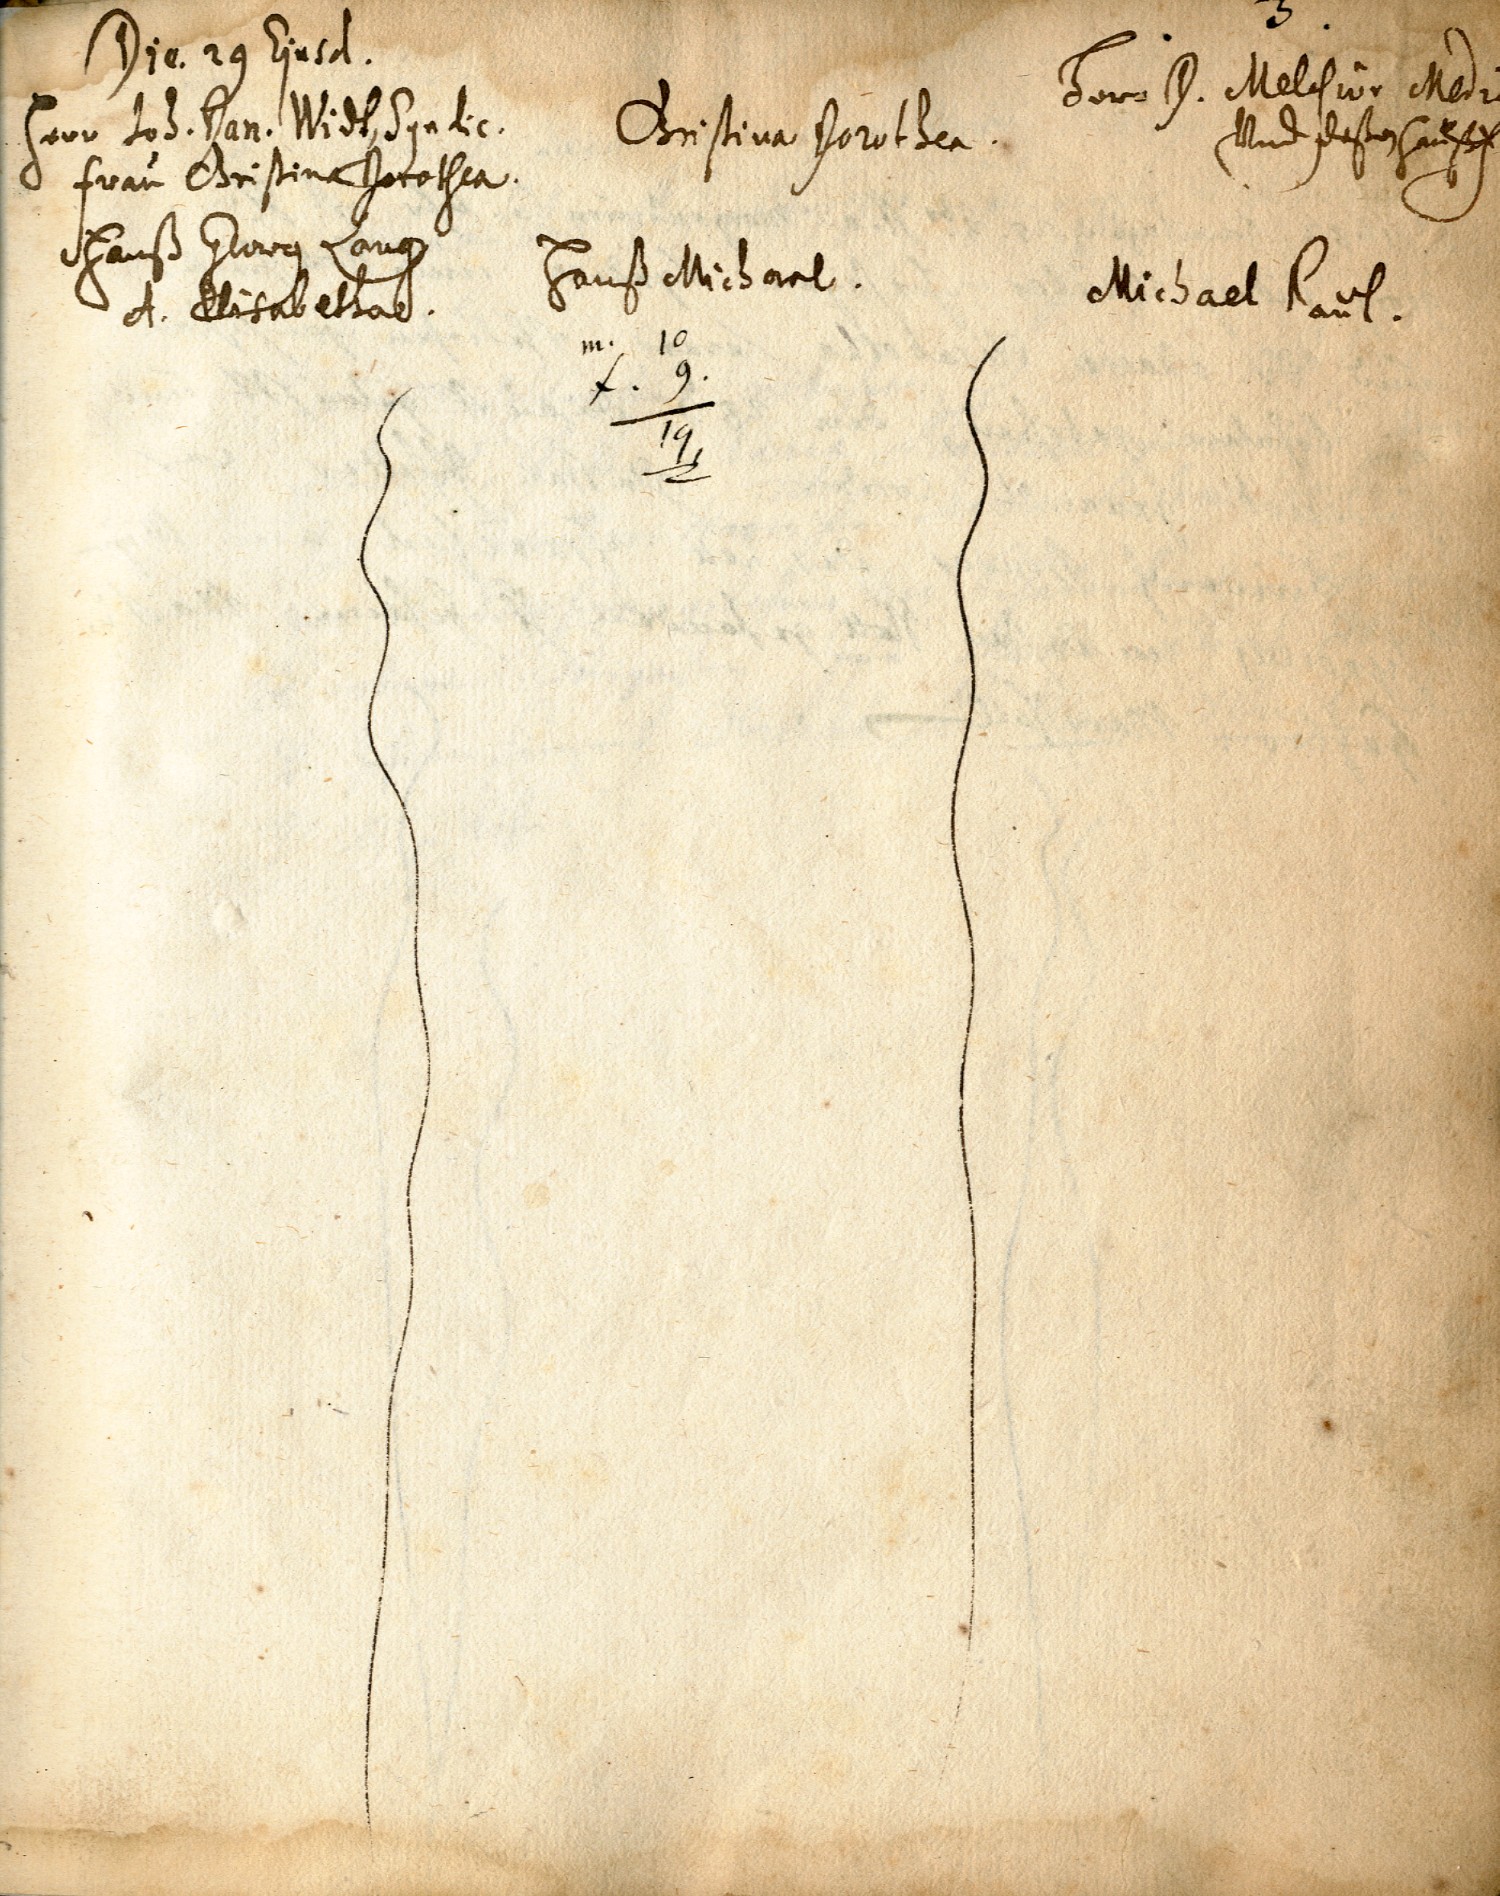 3.
Die. 29 Ejusd.
Herr Joh. Dan. Widt, Syndic.
frau Christina Dorothea.
Christina Dorothea.
Herr D. Melchior Medi
Und deßen Hauß
Hanß Georg Lang
A. Elisabethae.
Hanß Michael.
Michael Paul.
m. 10
f. 9.
19